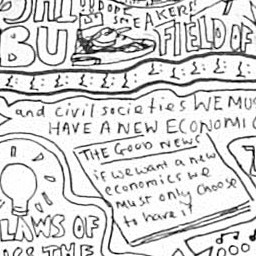 BU
SNEAKERS!
FIELD OF
and civil societies WE MUS
HAVE A NEW ECONOMIC
THE GOOD NEWS
if we want a new
economics we
must only choose
to have it
LAWS OF
THE